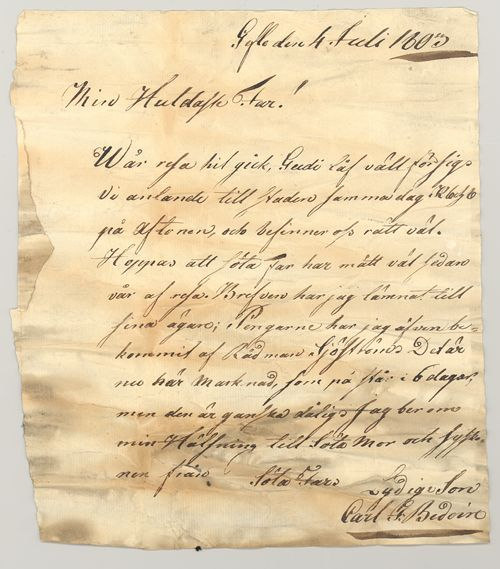 Gefle den 4 Juli 1803
Min Huldaste Far!
Wår resa hit gick, Gudi låf väll för sig.
Vi anlände till staden samma dag Kl 6
på Aftonen, och befinner oss rätt väl.
Hoppas att söta Far har mått väl sedan
vår af resa. Brefven har jag lämnat till
sina ägare; Pengarne har jag äfven be-
kommit af Rådman Sjöström. Det är
nu här marknad, som på står i 6 dagar,
men den är ganska dålig. Jag ber om
min Hälsning till Söta Mor och Sysko-
nen från Söta Fars Lydige Son
Carl F. Bedoire